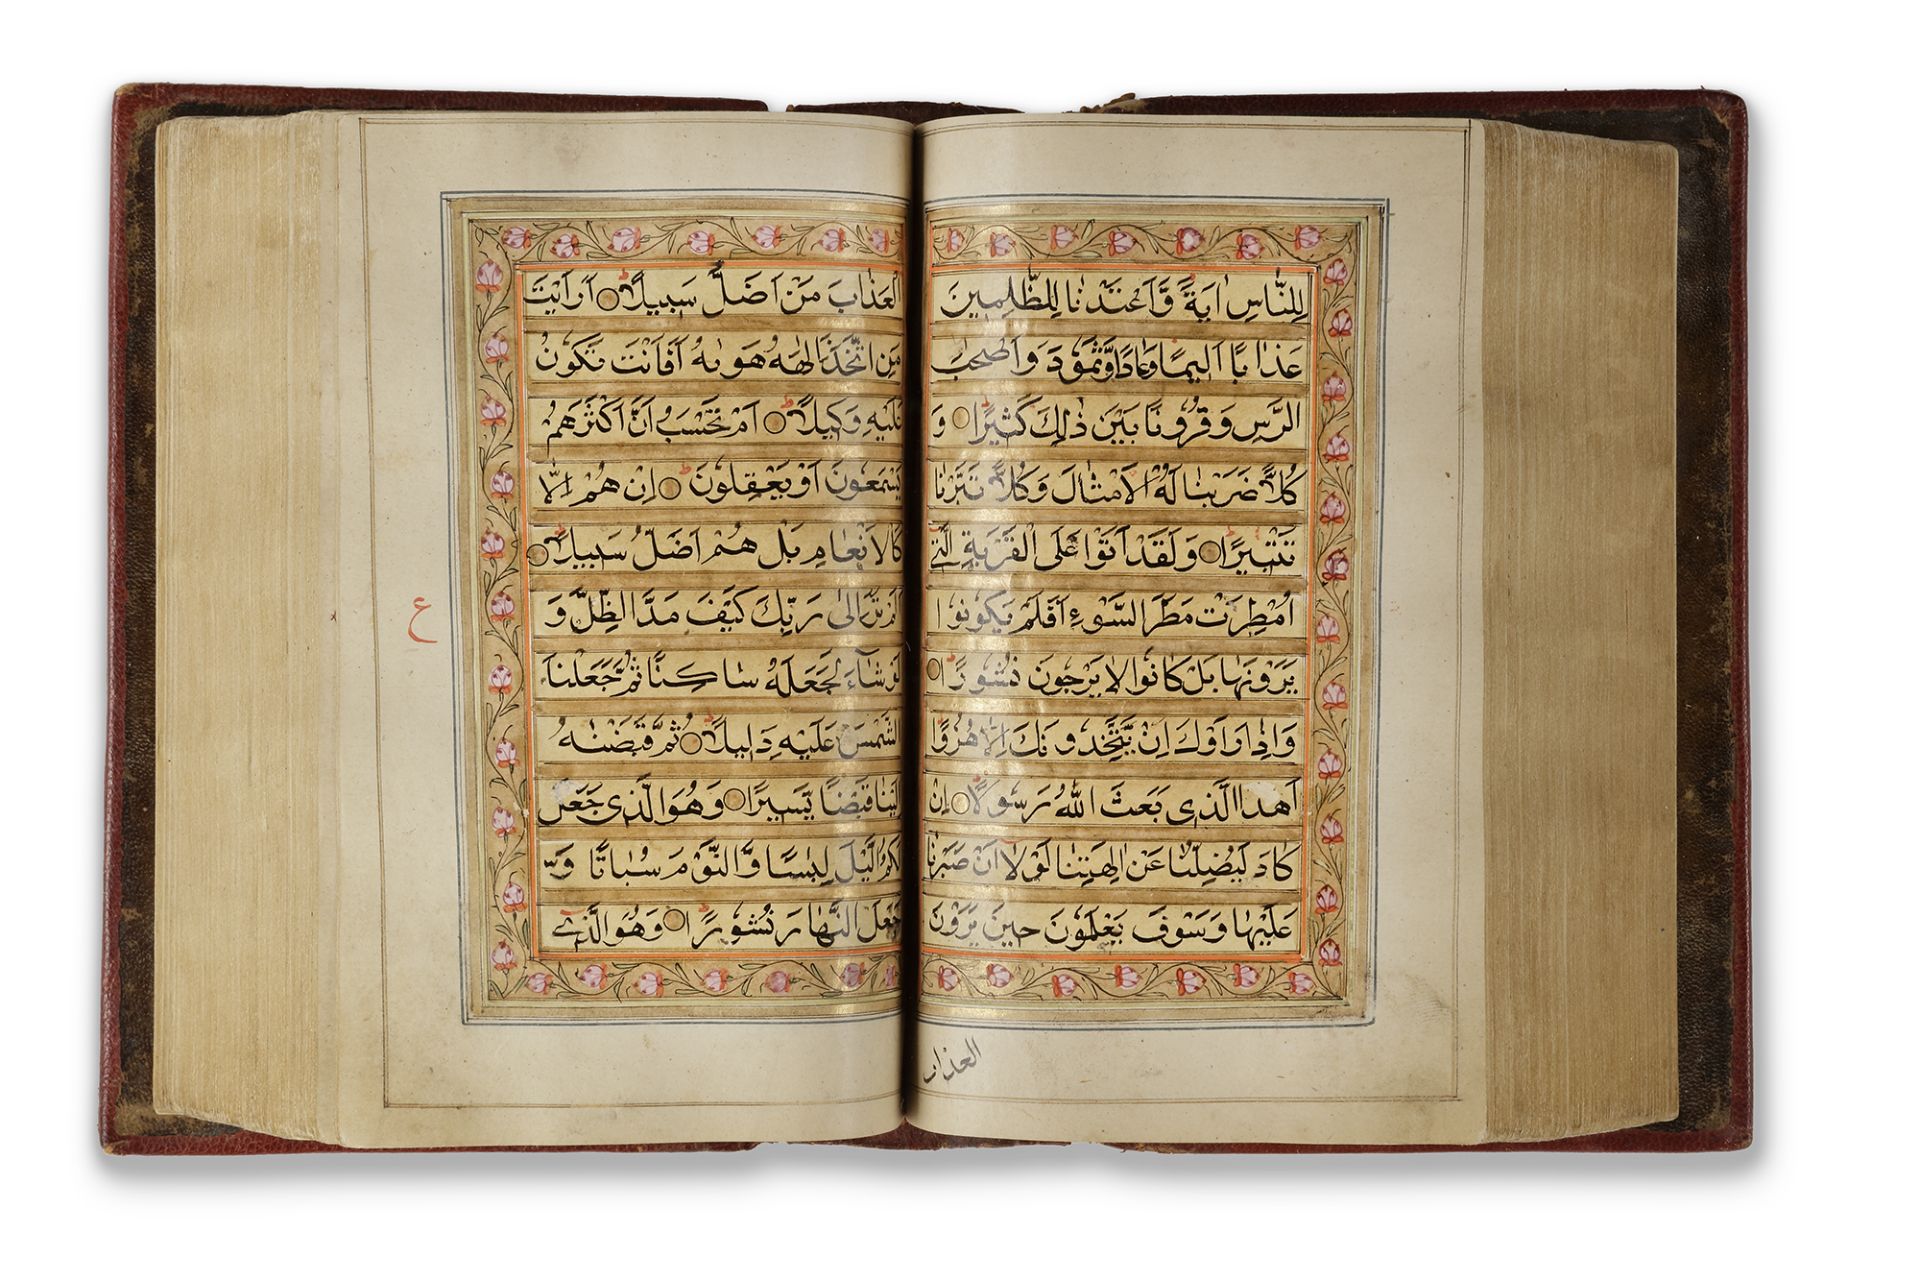 لِلنَّاسِ اٰيَةً وَّاَعْتَدْنَا لِلظّٰلِمِيْنَ
عَذَابًا اَلِيْمًا وَعَادًا وَّثَمُوْدَ وَاَصْحٰبَ
الرَّسِّ وَقُرُوْنًا بَيْنَ ذٰلِكَ كَثِيْرًا وَ
كُلًّا ضَرَبْنَا لَهُ الْاَمْثَالَ وَكُلًّا تَبَّرْنَا
تَتْبِيْرًا وَلَقَدْ اَتَوْا عَلَى الْقَرْيَةِ الَّتِيْ
اُمْطِرَتْ مَطَرَ السَّوْءِ اَفَلَمْ يَكُوْنُوْا
يَرَوْنَهَا بَلْ كَانُوْا لَا يَرْجُوْنَ نُشُوْرًا
وَاِذَا رَاَوْكَ اِنْ يَّتَّخِذُوْنَكَ اِلَّا هُزُوًا
اَهٰذَا الَّذِيْ بَعَثَ اللّٰهُ رَسُوْلًا اِنْ
كَادَ لَيُضِلُّنَا عَنْ اٰلِهَتِنَا لَوْلَا اَنْ صَبَرْنَا
عَلَيْهَا وَسَوْفَ يَعْلَمُوْنَ حِيْنَ يَرَوْنَ
العذاب
الْعَذَابَ مَنْ اَضَلُّ سَبِيْلًا اَرَاَيْتَ
مَنِ اتَّخَذَ اِلٰهَهٗ هَوٰىهُ اَفَاَنْتَ تَكُوْنُ
عَلَيْهِ وَكِيْلًا اَمْ تَحْسَبُ اَنَّ اَكْثَرَهُمْ
يَسْمَعُوْنَ اَوْ يَعْقِلُوْنَ اِنْ هُمْ اِلَّا
كَالْاَنْعَامِ بَلْ هُمْ اَضَلُّ سَبِيْلًا
اَلَمْ تَرَ اِلٰى رَبِّكَ كَيْفَ مَدَّ الظِّلَّ وَ
لَوْ شَآءَ لَجَعَلَهٗ سَاكِنًا ثُمَّ جَعَلْنَا
الشَّمْسَ عَلَيْهِ دَلِيْلًا ثُمَّ قَبَضْنٰهُ
اِلَيْنَا قَبْضًا يَّسِيْرًا وَهُوَ الَّذِيْ جَعَلَ
لَكُمُ الَّيْلَ لِبَاسًا وَّالنَّوْمَ سُبَاتًا وَّ
جَعَلَ النَّهَارَ نُشُوْرًا وَهُوَ الَّذِيْ
ع